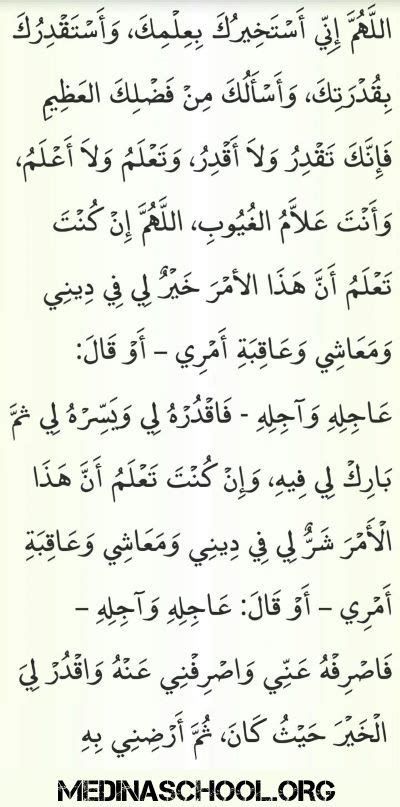 اللَّهُمَّ إِنِّي أَسْتَخِيرُكَ بِعِلْمِكَ، وَأَسْتَقْدِرُكَ
بِقُدْرَتِكَ، وَأَسْأَلُكَ مِنْ فَضْلِكَ العَظِيمِ
فَإِنَّكَ تَقْدِرُ وَلاَ أَقْدِرُ، وَتَعْلَمُ وَلاَ أَعْلَمُ،
وَأَنْتَ عَلاَّمُ الغُيُوبِ، اللَّهُمَّ إِنْ كُنْتَ
تَعْلَمُ أَنَّ هَذَا الأمْرَ خَيْرٌ لِي فِي دِينِي
وَمَعَاشِي وَعَاقِبَةِ أَمْرِي – أَوْ قَالَ:
عَاجِلِهِ وَآجِلِهِ - فَاقْدُرْهُ لِي وَيَسِّرْهُ لِي ثمَّ
بَارِكْ لِي فِيهِ، وَإِنْ كُنْتَ تَعْلَمُ أَنَّ هَذَا
الْأَمْرَ شَرٌّ لِي فِي دِينِي وَمَعَاشِي وَعَاقِبَةِ
أَمْرِي – أَوْ قَالَ: عَاجِلِهِ وَآجِلِهِ –
فَاصْرِفْهُ عَنِّي وَاصْرِفْنِي عَنْهُ وَاقْدُرْ لِيَ
الْخَيْرَ حَيْثُ كَانَ، ثُمَّ أَرْضِنِي بِهِ
MEDINASCHOOL.ORG